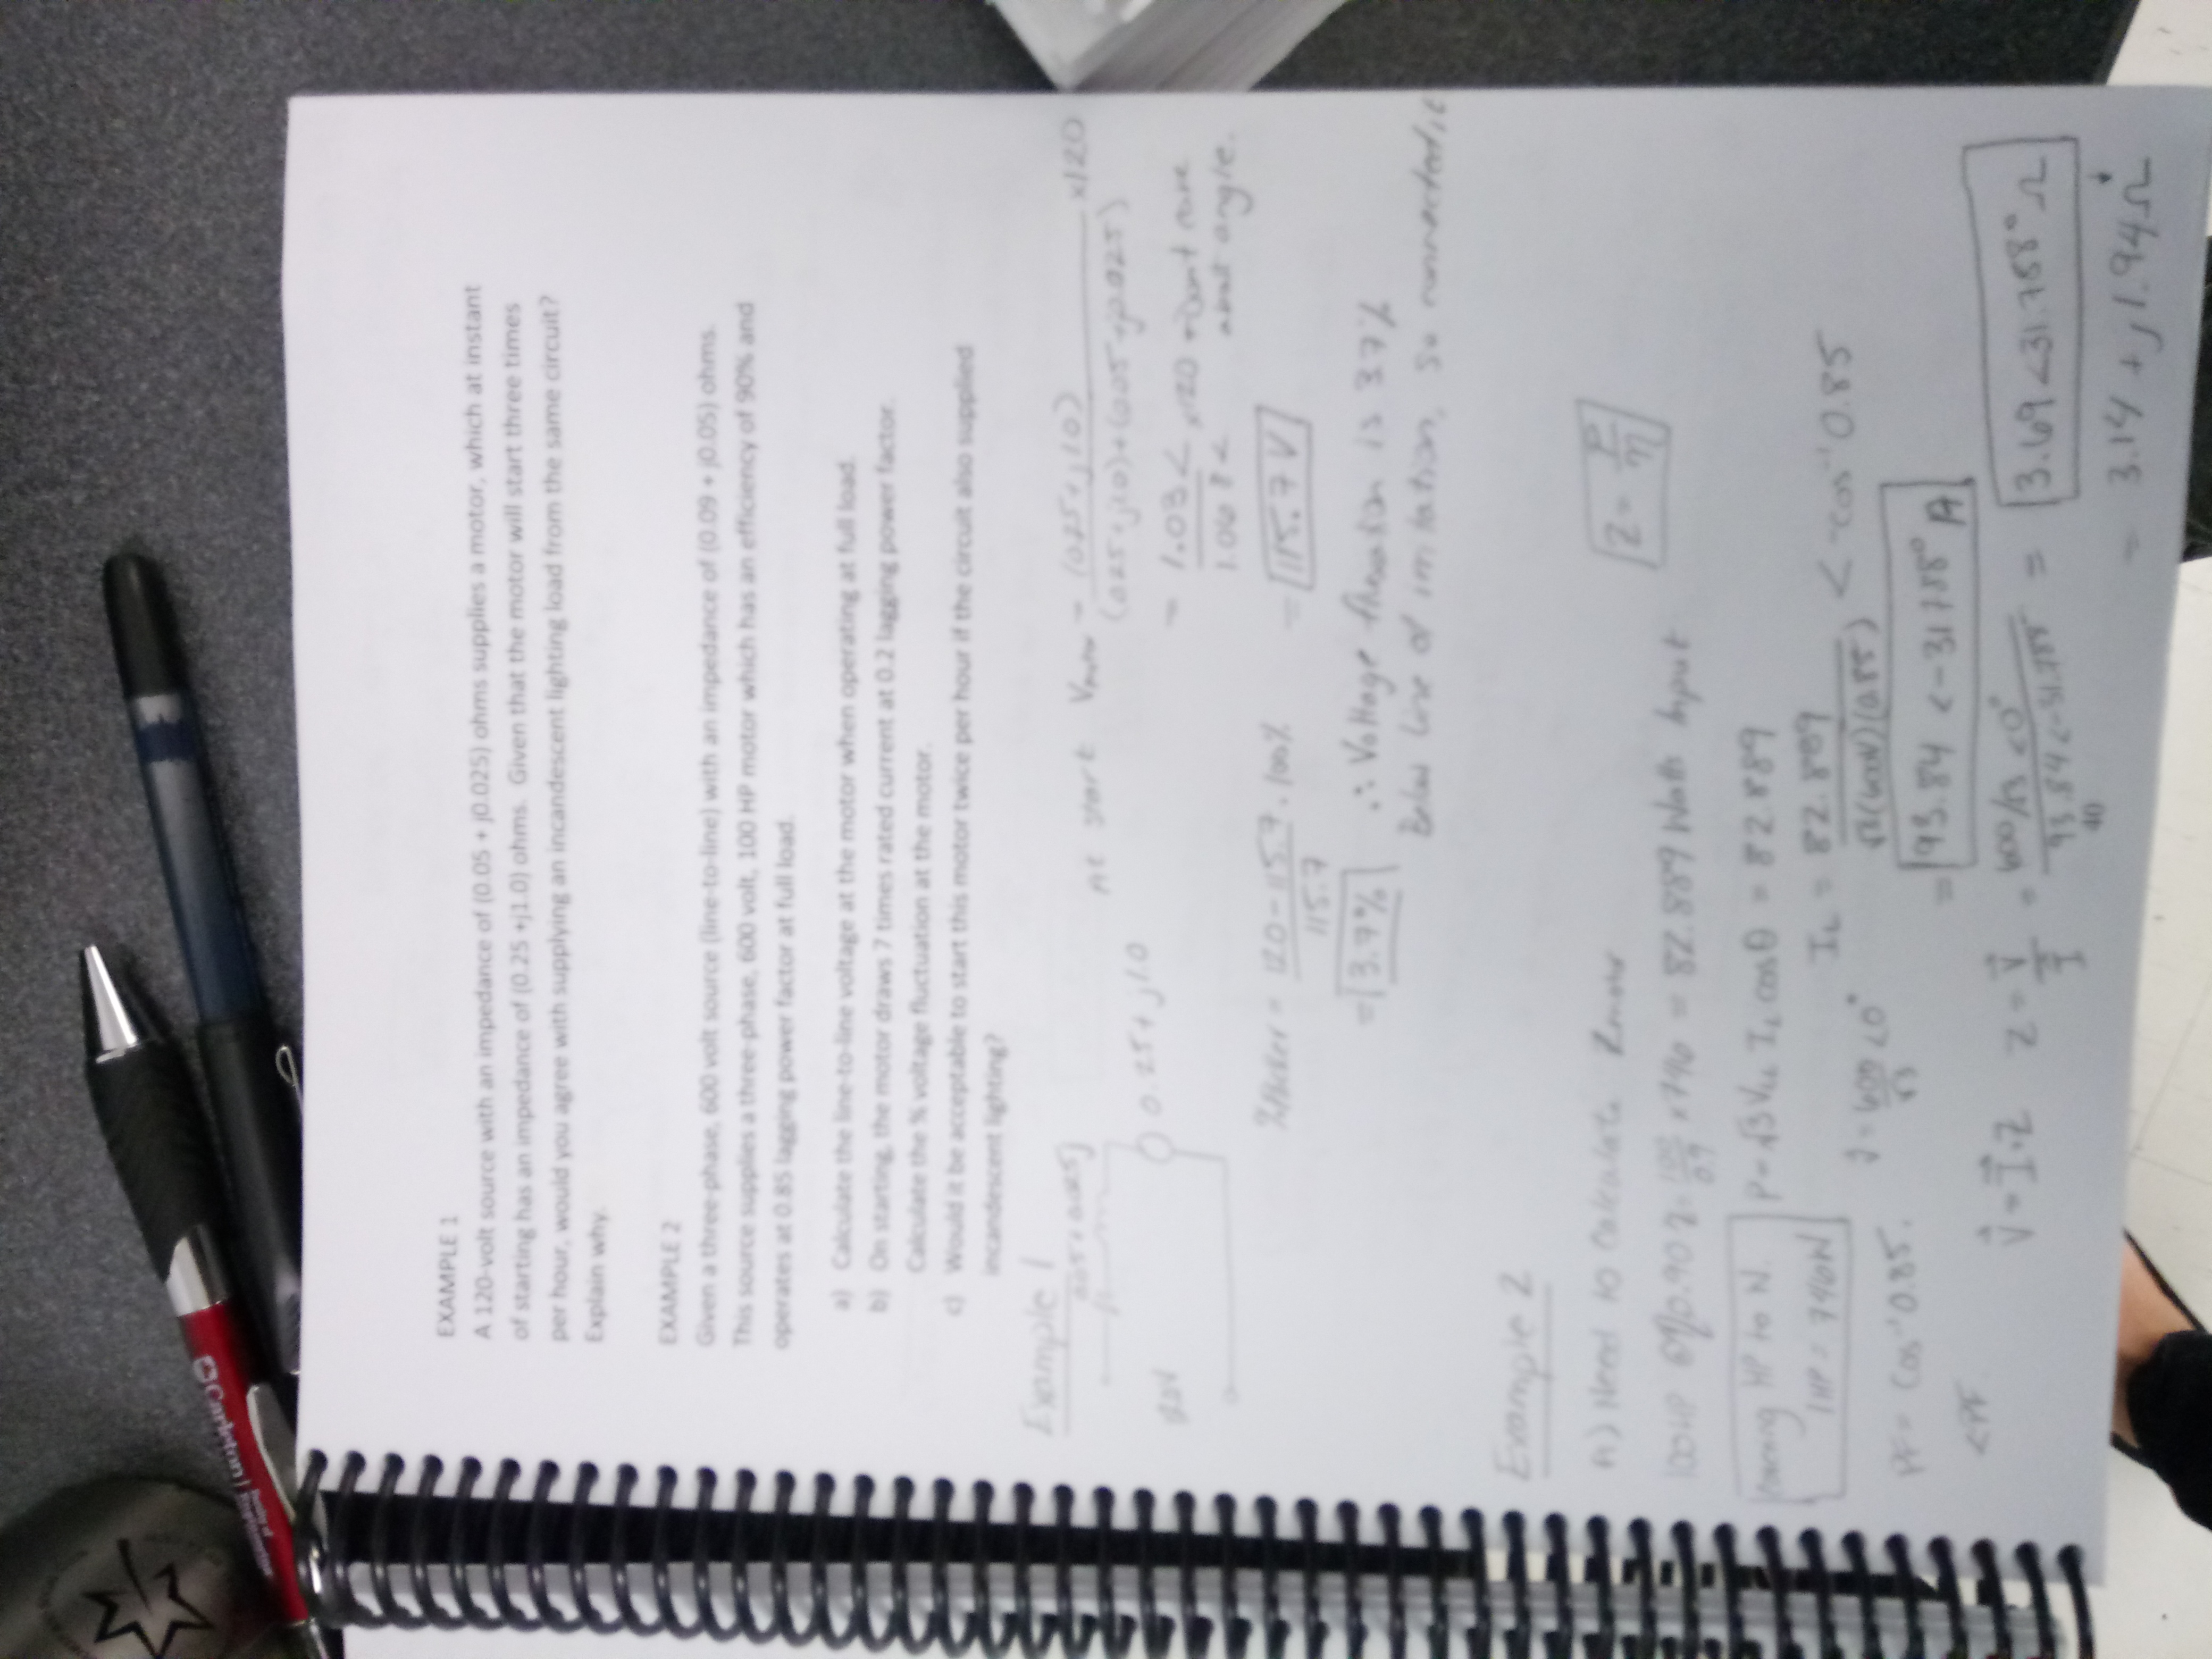 EXAMPLE 1
A 120-volt source with an impedance of (0.05 + j0.025) ohms supplies a motor, which at instant
of starting has an impedance of (0.25 +j1.0) ohms. Given that the motor will start three times
per hour, would you agree with supplying an incandescent lighting load from the same circuit?
Explain why.
EXAMPLE 2
Given a three-phase, 600 volt source (line-to-line) with an impedance of (0.09 + j0.05) ohms.
This source supplies a three-phase, 600 volt, 100 HP motor which has an efficiency of 90% and
operates at 0.85 lagging power factor at full load.
a) Calculate the line-to-line voltage at the motor when operating at full load.
b) On starting, the motor draws 7 times rated current at 0.2 lagging power factor.
Calculate the % voltage fluctuation at the motor.
c) Would it be acceptable to start this motor twice per hour if the circuit also supplied
incandescent lighting?
Example 1
0.05 + 0.025j
120V
0.25 + j1.0
At start Vmotor = (0.25 + j1.0) x120
(0.25 + j1.0) + (0.05 + j0.025)
= 1.03< x120 → Dont care
1.068< about angle.
= 115.7 V
= 120-115.7 . 100%
115.7
= 3.7%
∴ Voltage fluctuation is 3.7%
Below Line of irritation, so
Example 2
A) Need to calculate Zmotor
100HP 0.90 = 100 x 746 = 82.889 Watts Input
0.9
HP to W.
1HP = 746W
P = √3 VLL IL cosθ = 82.889
IL = 82.889 < -cos⁻¹ 0.85
√3(600V)(0.85)
= 93.84 < -31.788° A
PF = cos⁻¹ 0.85.
<PF
= 600 <0°
√3
V = I·Z Z = V = 600/√3 <0° = 3.69 <31.788° Ω
I 93.84 <-31.788°
= 3.14 + j1.94 Ω
Carleton
Faculty of